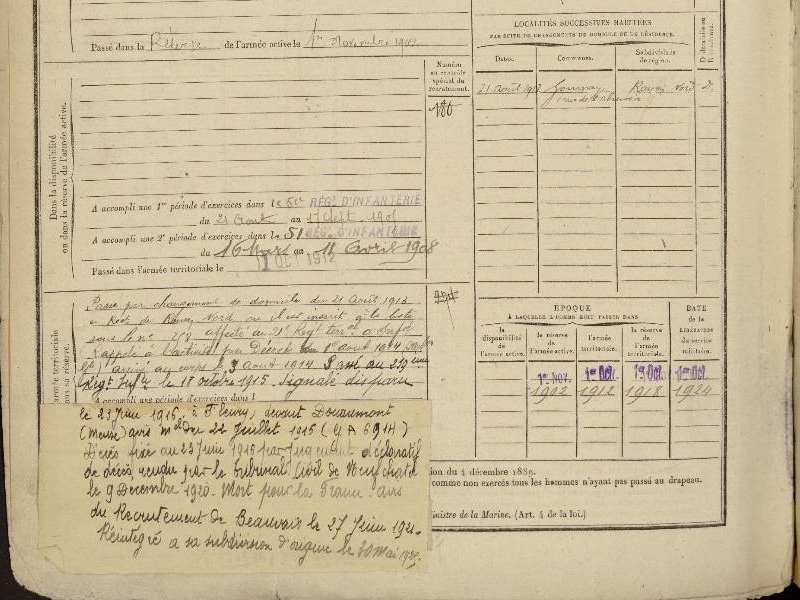 Passé dans la Réserve de l'armée active le 1er Novembre 1902
LOCALITÉS SUCCESSIVES HABITÉES
PAR SUITE DE CHANGEMENTS DE DOMICILE OU DE RÉSIDENCE.
Dates. Communes. Subdivisions de région. D. domicile ou R. résidence.
21 Août Rouen Nord D.
Numéro au contrôle spécial du recrutement.
180
Dans la disponibilité ou dans la réserve de l'armée active.
A accompli une 1re période d'exercices dans le 5e RÉGt D'INFANTERIE
du 21 Août au 17 Sept. 1905
A accompli une 2e période d'exercices dans le 51 RÉGt D'INFANTERIE
du 16 Mars au 11 Avril 1908
Passé dans l'armée territoriale le 1 OCT 1912
Passé par changement de domicile du 21 Août
de Rouen Nord où il est inscrit à la liste
sous le no affecté au 21e Régt terr. d'Infrie
rappelé à l'activité par Décret du 1er août 1914
arrivé au corps 3 août 1914 Passé au
Régt Infie le 18 octobre 1915. Signalé disparu
A accompli une période d'exercices dans l
le 23 Juin 1916, à Fleury, devant Douaumont
(Meuse) avis Mel du 22 Juillet 1916
Décès fixé au 23 Juin 1916 par Jugement déclaratif
de décès, rendu par le tribunal civil de Neufchatel
le 9 Décembre 1920. Mort pour la France avis
du Recrutement de Beauvais le 27 Juin 1921.
Réintégré à sa subdivision d'origine le 30 mai
ÉPOQUE
À LAQUELLE L'HOMME DOIT PASSER DANS
la disponibilité de l'armée active. la réserve de l'armée active. l'armée territoriale. la réserve de l'armée territoriale.
DATE DE LA LIBÉRATION du service militaire.
1er NOV. 1er OCT. 1er OCT. 1er OCT.
1902 1912 1918 1924
ion du 4 décembre 1889.
comme non exercés tous les hommes n'ayant pas passé au drapeau.
inistre de la Marine. (Art. 4 de la loi.)